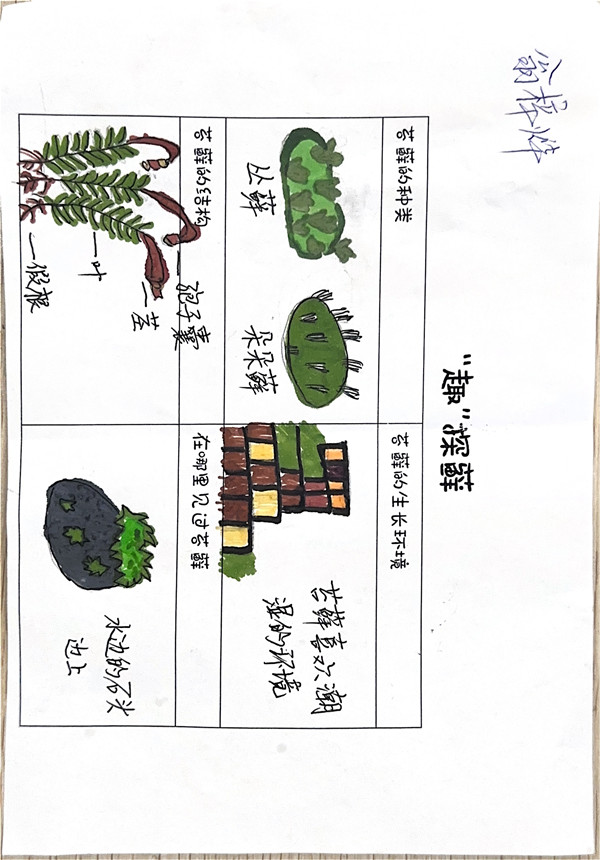 "趣"探藓
苔藓的种类
苔藓的生长环境
丛藓
朵朵藓
苔藓喜欢潮
湿的环境
苔藓的结构
在哪里见过苔藓
孢子囊
茎
叶
假根
水边的石头
边上